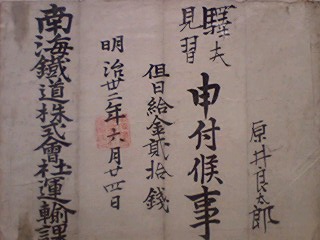 原井良太郎
驛夫
見習
申付候事
但日給金貳拾錢
明治廿二年六月廿四日
南海鐵道株式會社運輸課